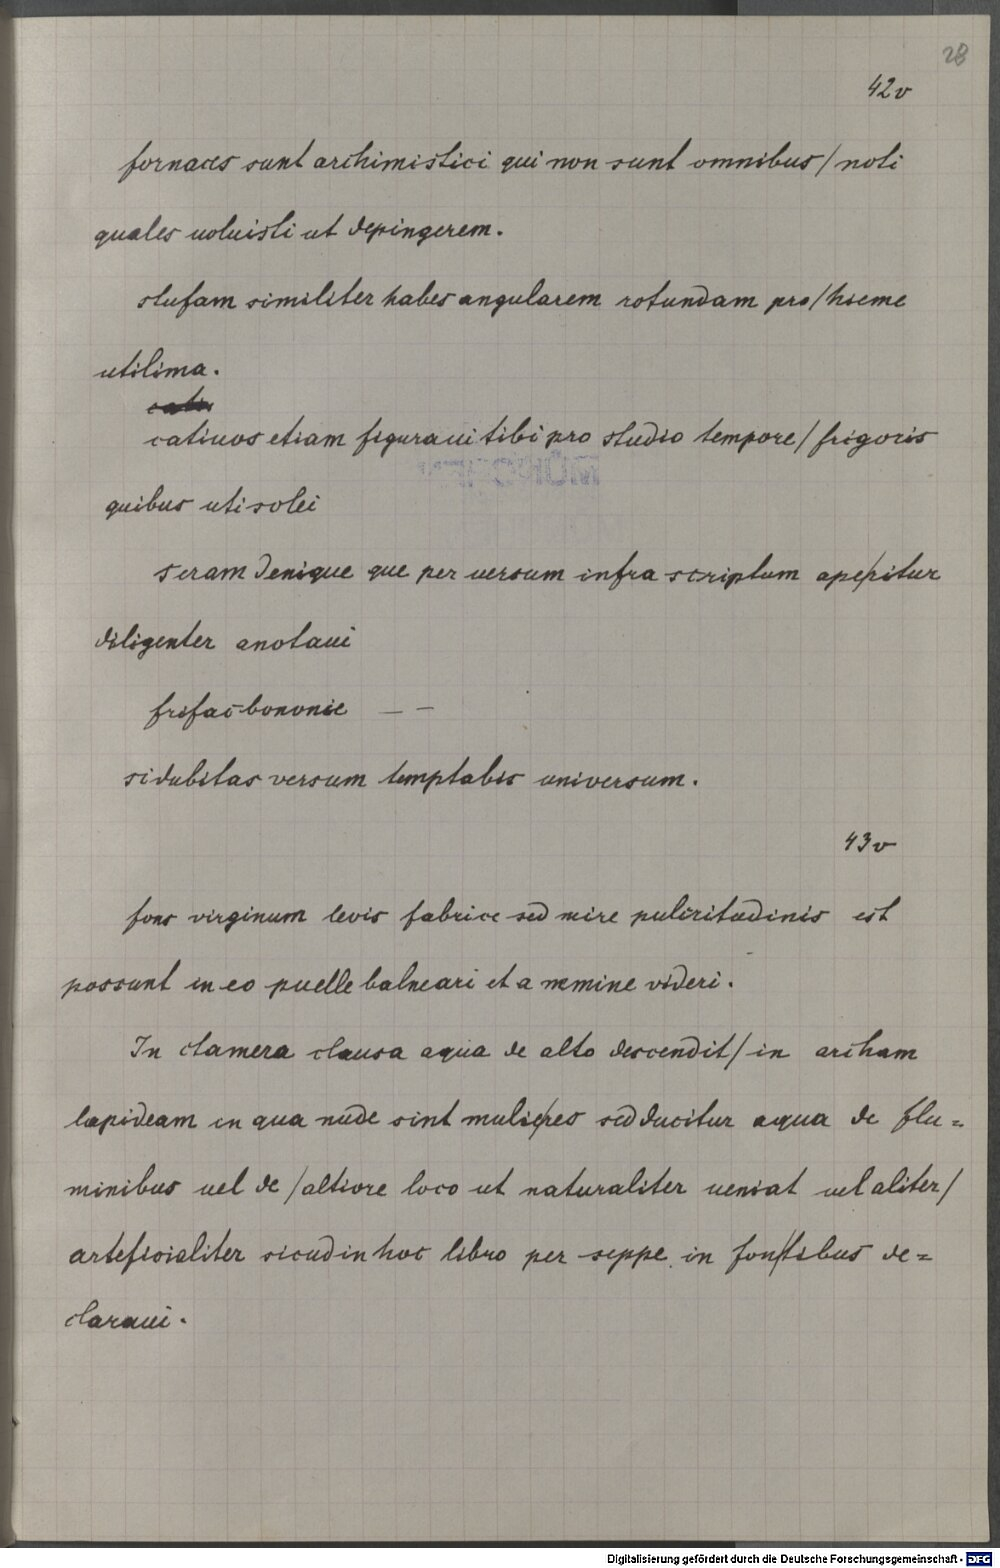 28
42v
fornaces sunt archimistici qui non sunt omnibus / noti
quales uoluisti ut depingerem.
stufam similiter habes angularem rotundam pro / hieme
utilima.
cati
catinos etiam figuraui tibi pro studio tempore / frigoris
quibus uti solei
seram denique que per uersum infra scriptum ape/ritur
diligenter anotaui
frifac bononie — —
si dubitas versum temptabis universum.
43v
fons virginum levis fabrice sed mire pulcritudinis est
possunt in eo puelle balneari et a nemine videri.
In clamera clausa aqua de alto descendit / in archam
lapideam in qua nude sint mulie/res sed ducitur aqua de flu=
minibus uel de / altiore loco ut naturaliter ueniat uel aliter /
arteficialiter sicud in hoc libro per seppe in fon/tibus de=
claraui.
Digitalisierung gefördert durch die Deutsche Forschungsgemeinschaft - DFG